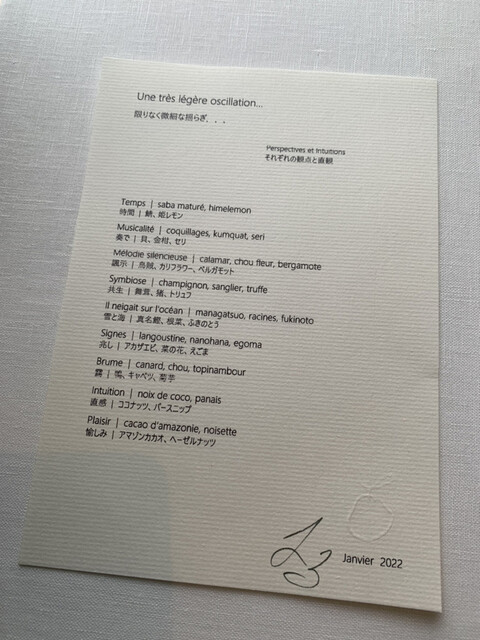 Une très légère oscillation...
限りなく微細な揺らぎ．．．
Perspectives et Intuitions
それぞれの観点と直観
Temps | saba maturé, himelemon
時間 | 鯖、姫レモン
Musicalité | coquillages, kumquat, seri
奏で | 貝、金柑、セリ
Mélodie silencieuse | calamar, chou fleur, bergamote
諷示 | 烏賊、カリフラワー、ベルガモット
Symbiose | champignon, sanglier, truffe
共生 | 舞茸、猪、トリュフ
Il neigait sur l'océan | managatsuo, racines, fukinoto
雪と海 | 真名鰹、根菜、ふきのとう
Signes | langoustine, nanohana, egoma
兆し | アカザエビ、菜の花、えごま
Brume | canard, chou, topinambour
霧 | 鴨、キャベツ、菊芋
Intuition | noix de coco, panais
直感 | ココナッツ、パースニップ
Plaisir | cacao d'amazonie, noisette
愉しみ | アマゾンカカオ、ヘーゼルナッツ
Janvier 2022